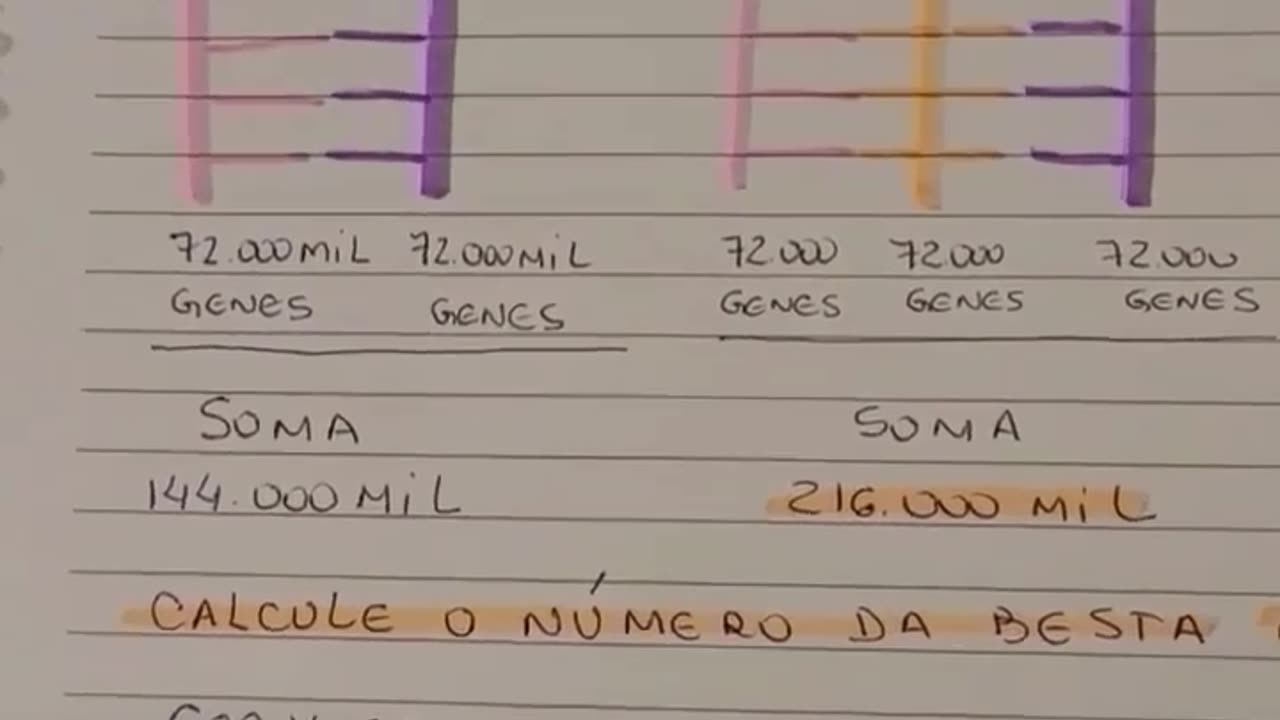 72.000 MiL 72.000 MiL 72.000 72.000 72.000
GENES GENES GENES GENES GENES
SOMA SOMA
144.000 MiL 216.000 MiL
CALCULE O NÚMERO DA BESTA